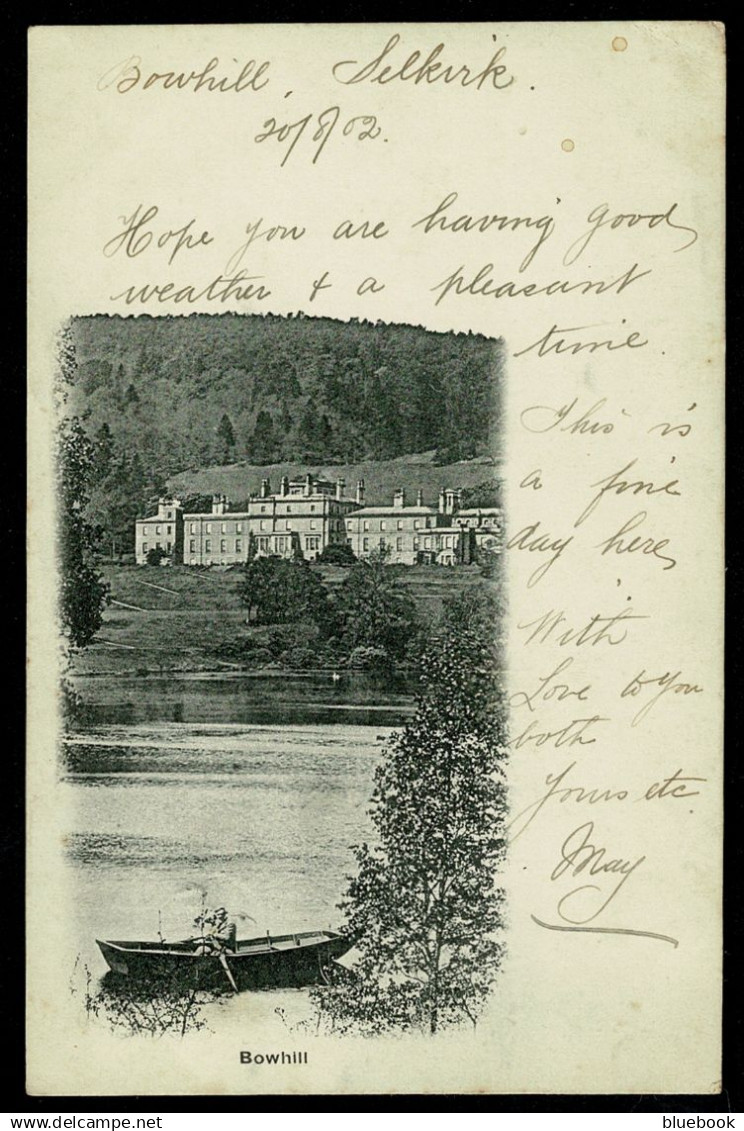 Bowhill, Selkirk.
20/8/02.
Hope you are having good
weather & a pleasant
time.
This is
a fine
day here
With
Love to you
both
Yours etc.
May
Bowhill
bluebook